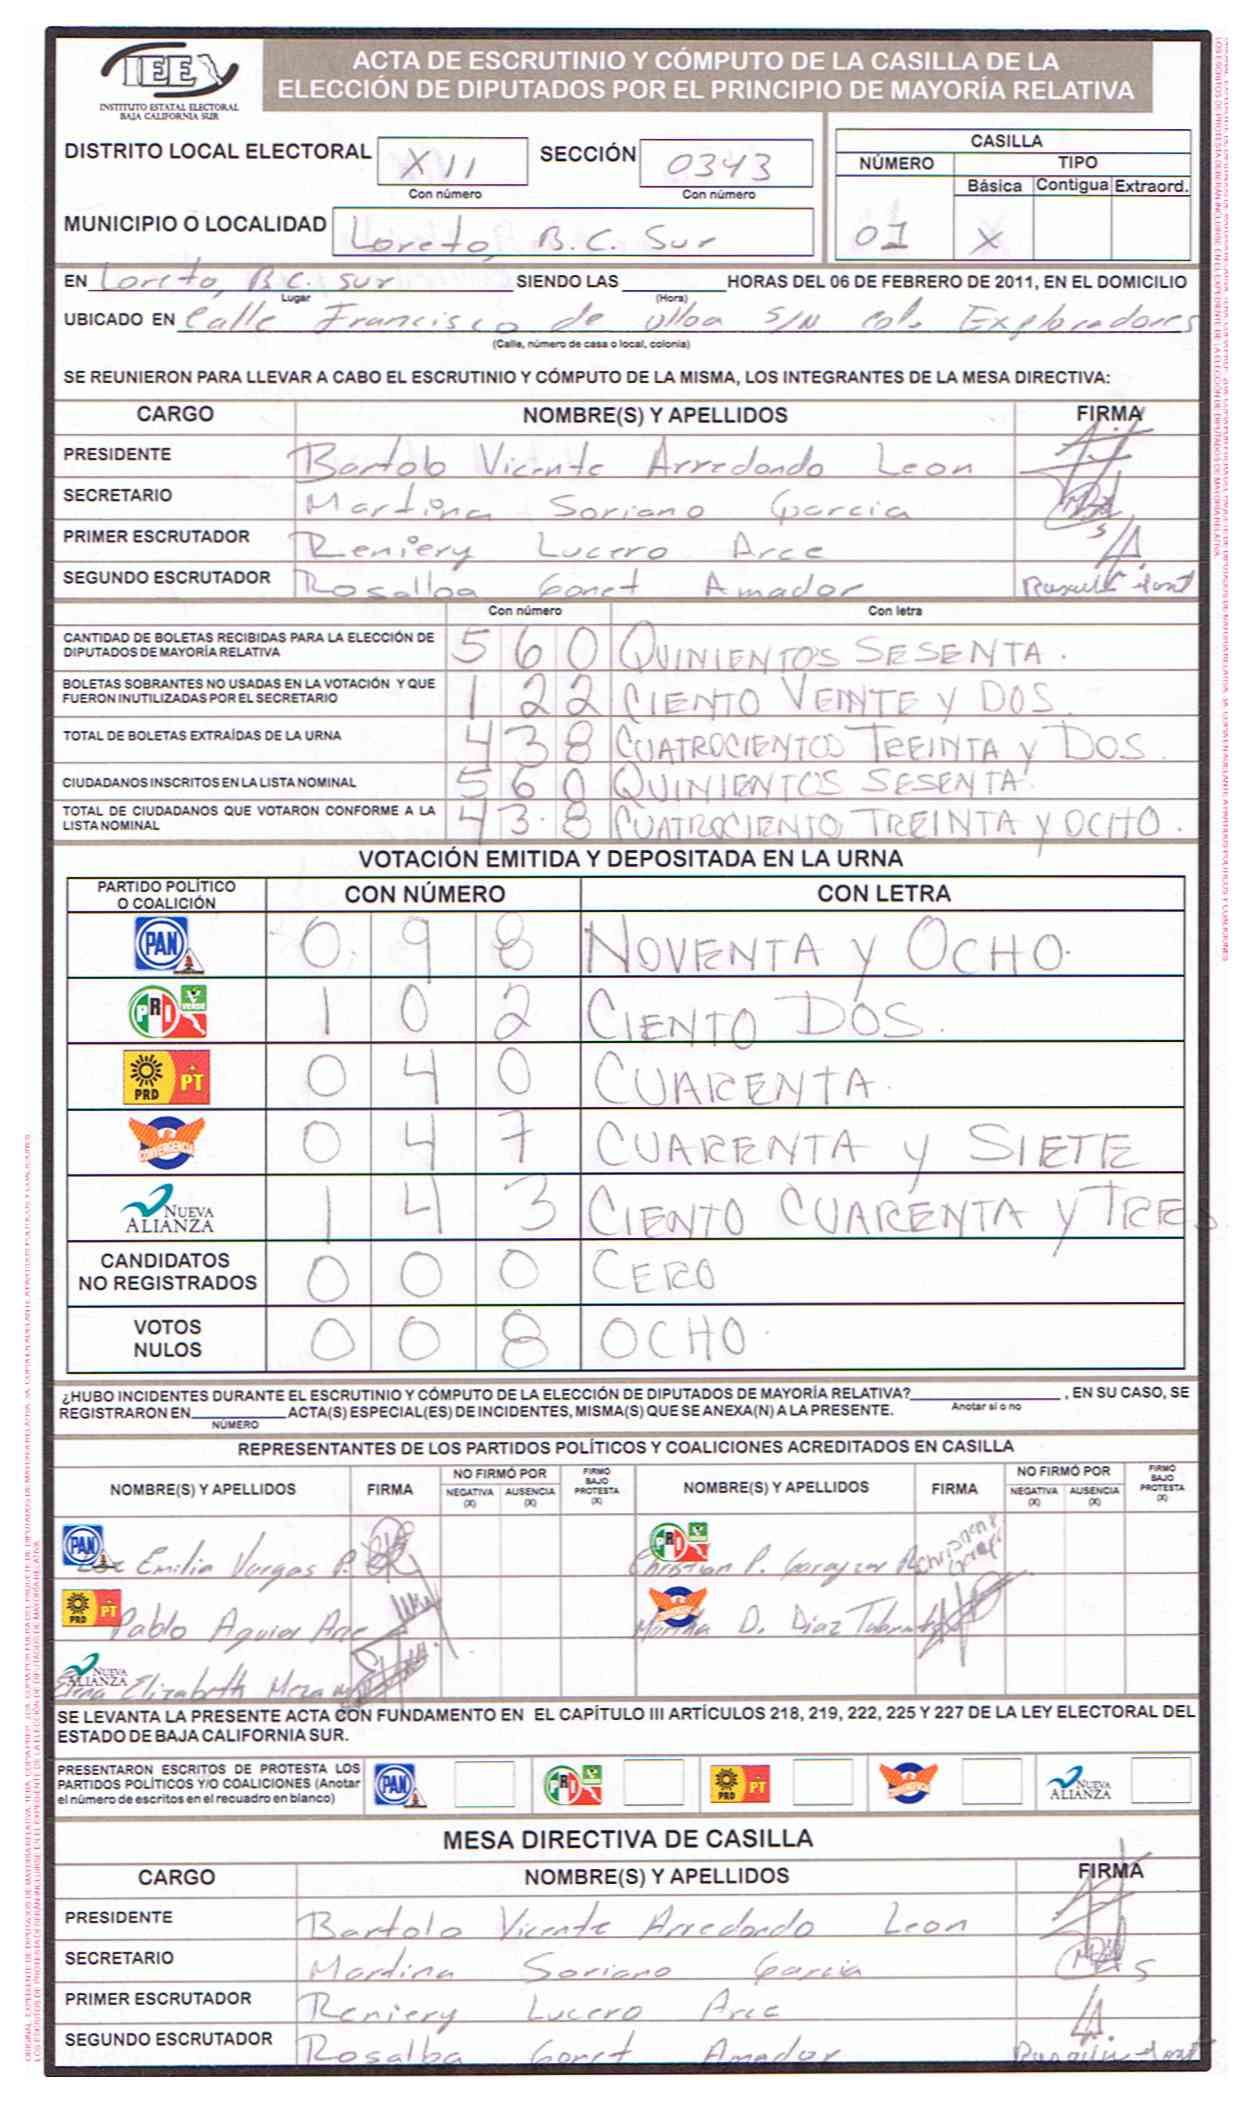 IEE
INSTITUTO ESTATAL ELECTORAL
BAJA CALIFORNIA SUR
ACTA DE ESCRUTINIO Y CÓMPUTO DE LA CASILLA DE LA
ELECCIÓN DE DIPUTADOS POR EL PRINCIPIO DE MAYORÍA RELATIVA
DISTRITO LOCAL ELECTORAL XII SECCIÓN 0343
Con número Con número
MUNICIPIO O LOCALIDAD Loreto, B.C. Sur
CASILLA
NÚMERO TIPO
Básica Contigua Extraord.
01 X
EN Loreto, B.C. sur SIENDO LAS HORAS DEL 06 DE FEBRERO DE 2011, EN EL DOMICILIO
Lugar (Hora)
UBICADO EN Calle Francisco de Ulloa S/N col. Exploradores
(Calle, número de casa o local, colonia)
SE REUNIERON PARA LLEVAR A CABO EL ESCRUTINIO Y CÓMPUTO DE LA MISMA, LOS INTEGRANTES DE LA MESA DIRECTIVA:
CARGO NOMBRE(S) Y APELLIDOS FIRMA
PRESIDENTE Bartolo Vicente Arredondo Leon
SECRETARIO Martina Soriano Garcia
PRIMER ESCRUTADOR Reniery Lucero Arce
SEGUNDO ESCRUTADOR Rosalba Gonet Amador
Con número Con letra
CANTIDAD DE BOLETAS RECIBIDAS PARA LA ELECCIÓN DE
DIPUTADOS DE MAYORÍA RELATIVA 560 QUINIENTOS SESENTA.
BOLETAS SOBRANTES NO USADAS EN LA VOTACIÓN Y QUE
FUERON INUTILIZADAS POR EL SECRETARIO 122 CIENTO VEINTE Y DOS.
TOTAL DE BOLETAS EXTRAÍDAS DE LA URNA 438 CUATROCIENTOS TREINTA Y DOS.
CIUDADANOS INSCRITOS EN LA LISTA NOMINAL 560 QUINIENTOS SESENTA.
TOTAL DE CIUDADANOS QUE VOTARON CONFORME A LA
LISTA NOMINAL 43.8 CUATROCIENTO TREINTA Y OCHO.
VOTACIÓN EMITIDA Y DEPOSITADA EN LA URNA
PARTIDO POLÍTICO
O COALICIÓN CON NÚMERO CON LETRA
PAN 0.98 NOVENTA Y OCHO.
PRI VERDE 102 CIENTO DOS.
PRD PT 040 CUARENTA.
CONVERGENCIA 047 CUARENTA Y SIETE
NUEVA ALIANZA 143 CIENTO CUARENTA Y TRES
CANDIDATOS
NO REGISTRADOS 000 CERO
VOTOS
NULOS 008 OCHO.
¿HUBO INCIDENTES DURANTE EL ESCRUTINIO Y CÓMPUTO DE LA ELECCIÓN DE DIPUTADOS DE MAYORÍA RELATIVA? , EN SU CASO, SE
Anotar sí o no
REGISTRARON EN ACTA(S) ESPECIAL(ES) DE INCIDENTES, MISMA(S) QUE SE ANEXA(N) A LA PRESENTE.
NÚMERO
REPRESENTANTES DE LOS PARTIDOS POLÍTICOS Y COALICIONES ACREDITADOS EN CASILLA
NOMBRE(S) Y APELLIDOS FIRMA NO FIRMÓ POR NEGATIVA (X) AUSENCIA (X) FIRMÓ BAJO PROTESTA (X) NOMBRE(S) Y APELLIDOS FIRMA NO FIRMÓ POR NEGATIVA (X) AUSENCIA (X) FIRMÓ BAJO PROTESTA (X)
PAN Emilia Vargas P. PRI VERDE Christian P. Garayzar
PRD PT Pablo Aguiar Arce CONVERGENCIA Martha D. Diaz
NUEVA ALIANZA Elizabeth Meza
SE LEVANTA LA PRESENTE ACTA CON FUNDAMENTO EN EL CAPÍTULO III ARTÍCULOS 218, 219, 222, 225 Y 227 DE LA LEY ELECTORAL DEL
ESTADO DE BAJA CALIFORNIA SUR.
PRESENTARON ESCRITOS DE PROTESTA LOS
PARTIDOS POLÍTICOS Y/O COALICIONES (Anotar
el número de escritos en el recuadro en blanco)
PAN PRI VERDE PRD PT CONVERGENCIA NUEVA ALIANZA
MESA DIRECTIVA DE CASILLA
CARGO NOMBRE(S) Y APELLIDOS FIRMA
PRESIDENTE Bartolo Vicente Arredondo Leon
SECRETARIO Martina Soriano Garcia
PRIMER ESCRUTADOR Reniery Lucero Arce
SEGUNDO ESCRUTADOR Rosalba Gonet Amador